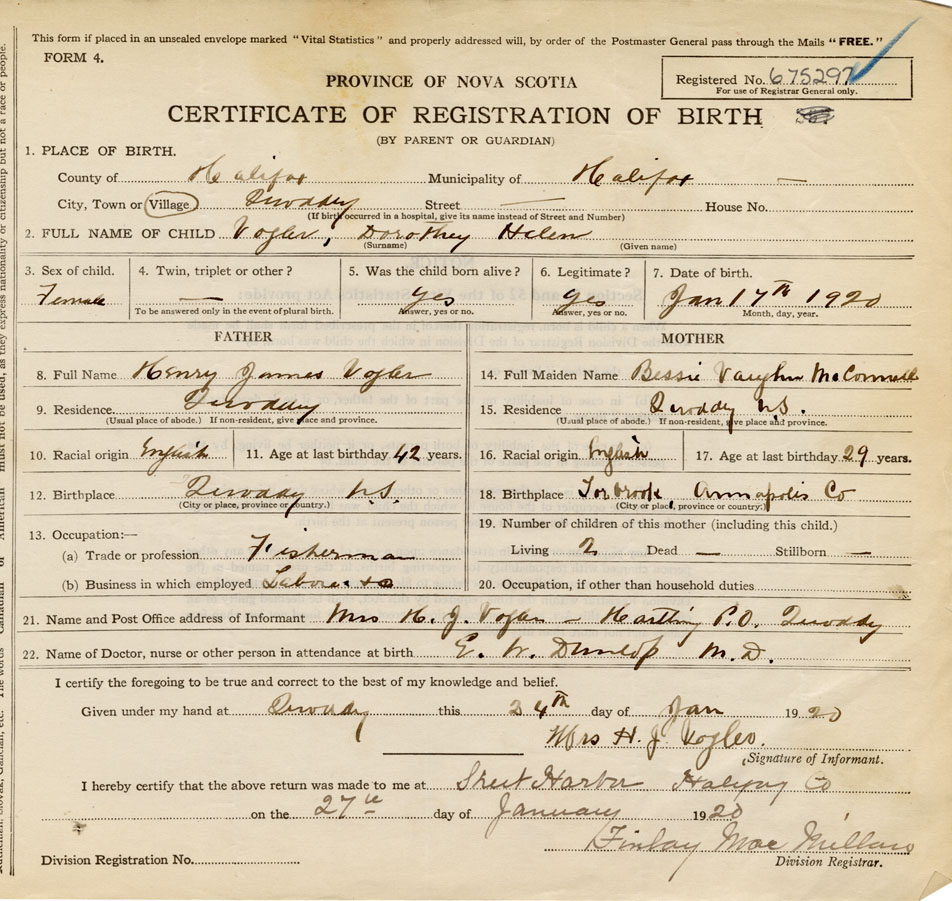 This form if placed in an unsealed envelope marked "Vital Statistics" and properly addressed will, by order of the Postmaster General pass through the Mails "FREE."
FORM 4.
Registered No. 675297
For use of Registrar General only.
PROVINCE OF NOVA SCOTIA
CERTIFICATE OF REGISTRATION OF BIRTH
(BY PARENT OR GUARDIAN)
1. PLACE OF BIRTH.
County of Halifax Municipality of Halifax —
City, Town or Village Street — House No.
(If birth occurred in a hospital, give its name instead of Street and Number)
2. FULL NAME OF CHILD Vogler, Dorothey Helen
(Surname) (Given name)
3. Sex of child. 4. Twin, triplet or other? 5. Was the child born alive? 6. Legitimate? 7. Date of birth.
Female — Yes Yes Jan 17th 1920
To be answered only in the event of plural birth. Answer, yes or no. Answer, yes or no. Month, day, year.
FATHER MOTHER
8. Full Name Henry James Vogler 14. Full Maiden Name Bessie Vaughn McConnell
9. Residence. 15. Residence N.S.
(Usual place of abode.) If non-resident, give place and province. (Usual place of abode.) If non-resident, give place and province.
10. Racial origin English 11. Age at last birthday 42 years. 16. Racial origin English 17. Age at last birthday 29 years.
12. Birthplace N.S. 18. Birthplace Torbrook, Annapolis Co
(City or place, province or country.) (City or place, province or country.)
13. Occupation:— 19. Number of children of this mother (including this child.)
(a) Trade or profession Fisherman Living 2 Dead — Stillborn —
(b) Business in which employed 20. Occupation, if other than household duties
21. Name and Post Office address of Informant Mrs H. J. Vogler – P.O.
22. Name of Doctor, nurse or other person in attendance at birth E. W. Dunlop M.D.
I certify the foregoing to be true and correct to the best of my knowledge and belief.
Given under my hand at this 24th day of Jan 1920
Mrs H. J. Vogler.
Signature of Informant.
I hereby certify that the above return was made to me at Sheet Harbor Halifax Co
on the 27th day of January 1920
Finlay MacMillan
Division Registration No. Division Registrar.